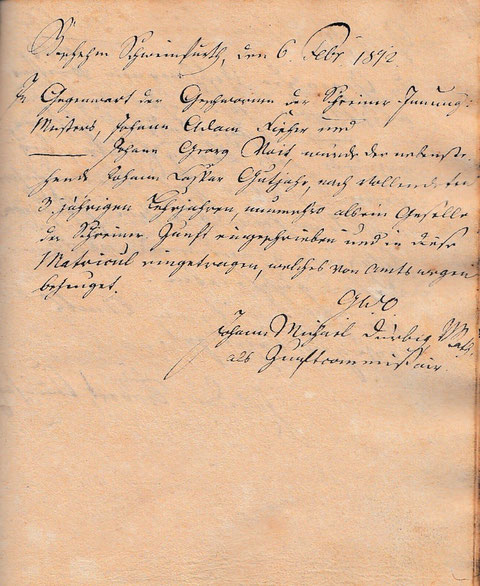 Geschehen Schweinfurth, den 6. Febr 1812
In Gegenwart der Geschworne der Schreiner-Innung
Meisters, Johann Adam Fischer und
Johann Georg Voit, wurde der nebenste-
hende Johann Caspar Gutjahr, nach vollendeten
3 jährigen Lehrjahren, nunmehro als ein Geselle
der Schreiner Zunft eingeschrieben und in diese
Matricul eingetragen, welches von Amts wegen
bezeuget.
Johann Michael
als Zunftcommissair.